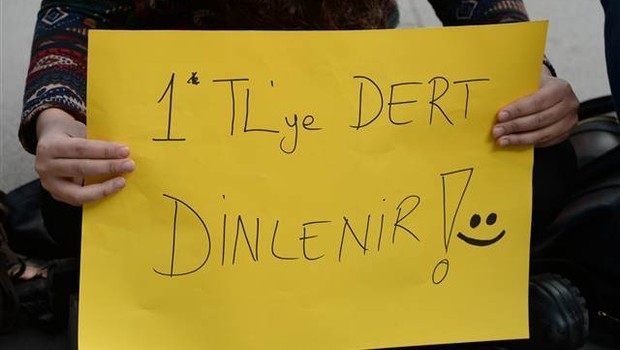 1 TL'ye DERT
DİNLENİR!